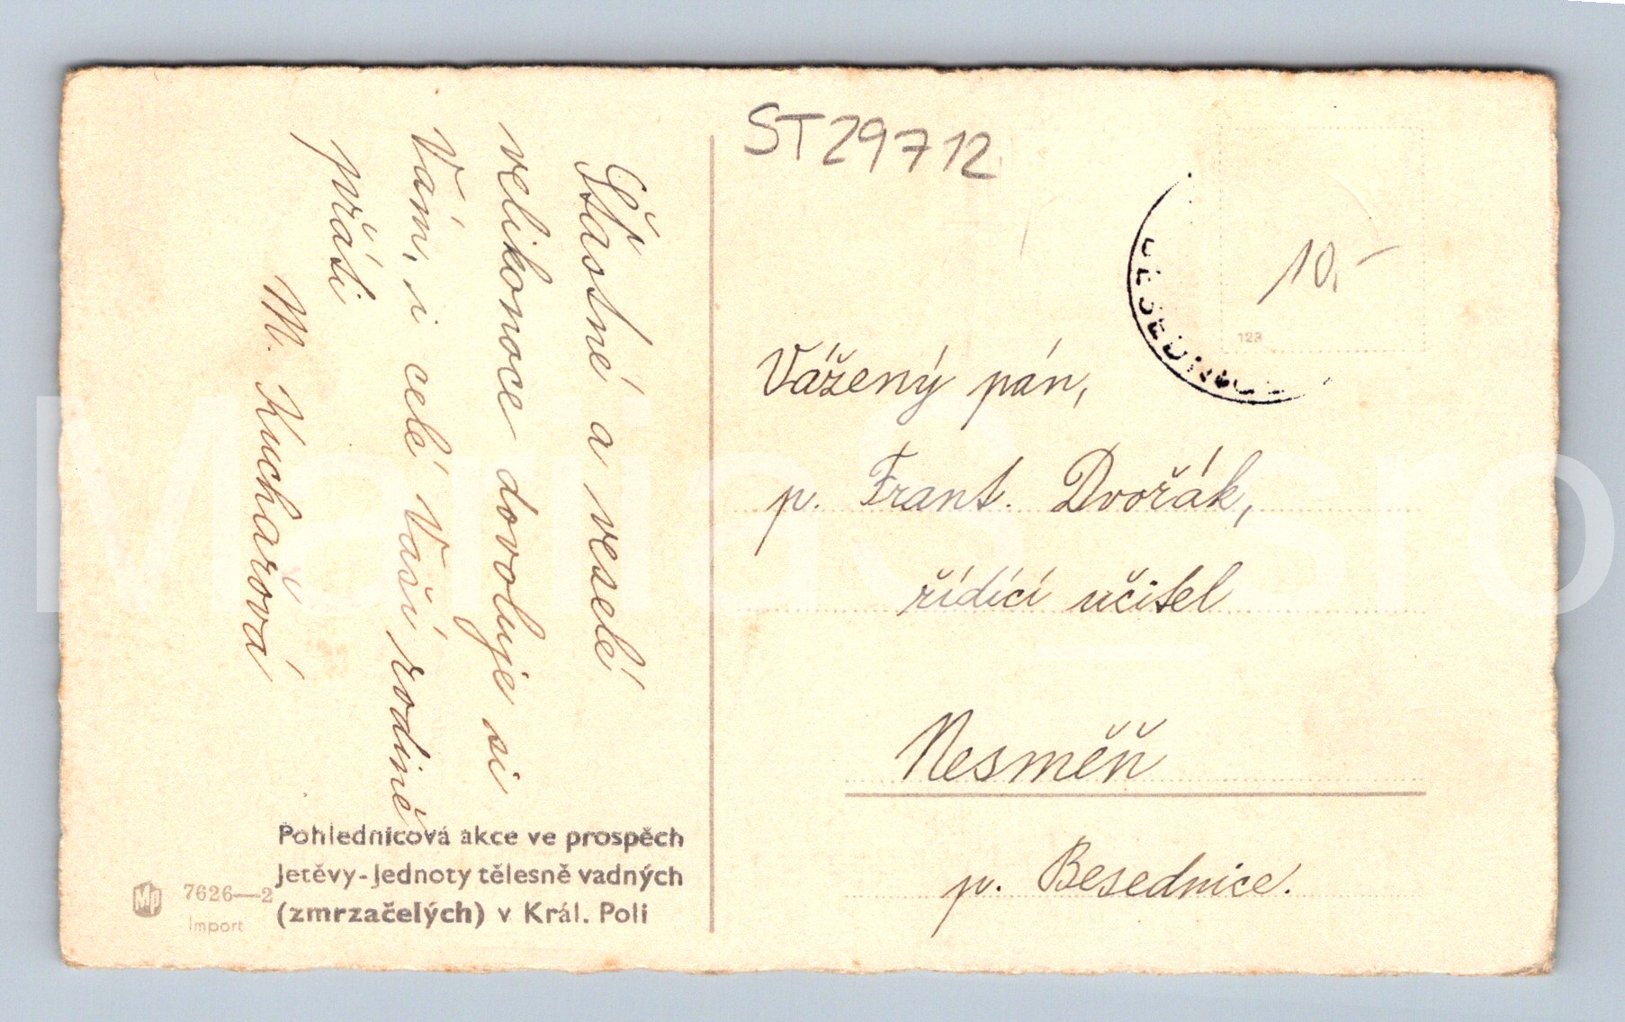 Šťastné a veselé
velikonoce dovoluje si
Vám, i celé Vaší rodině
přáti
M. Kuchařová
ST29712
10.-
123
Vážený pán,
p. Frant. Dvořák,
řídící učitel
Nesměň
p. Besednice.
Pohlednicová akce ve prospěch
Jetěvy-Jednoty tělesně vadných
(zmrzačelých) v Král. Poli
Mp 7626—2
Import